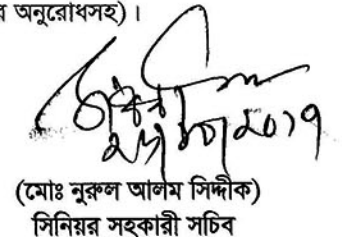 অনুরোধসহ)।
(মোঃ নুরুল আলম সিদ্দীক)
সিনিয়র সহকারী সচিব